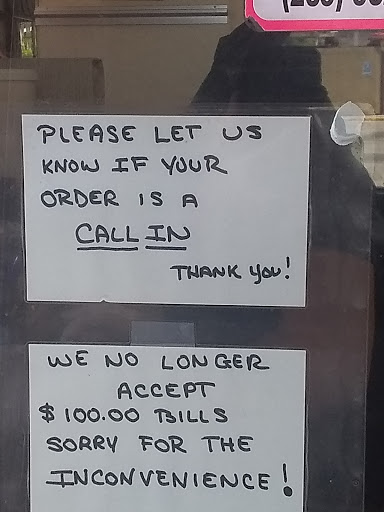 PLEASE LET US
KNOW IF YOUR
ORDER IS A
CALL IN
THANK YOU!
WE NO LONGER
ACCEPT
$100.00 BILLS
SORRY FOR THE
INCONVENIENCE!